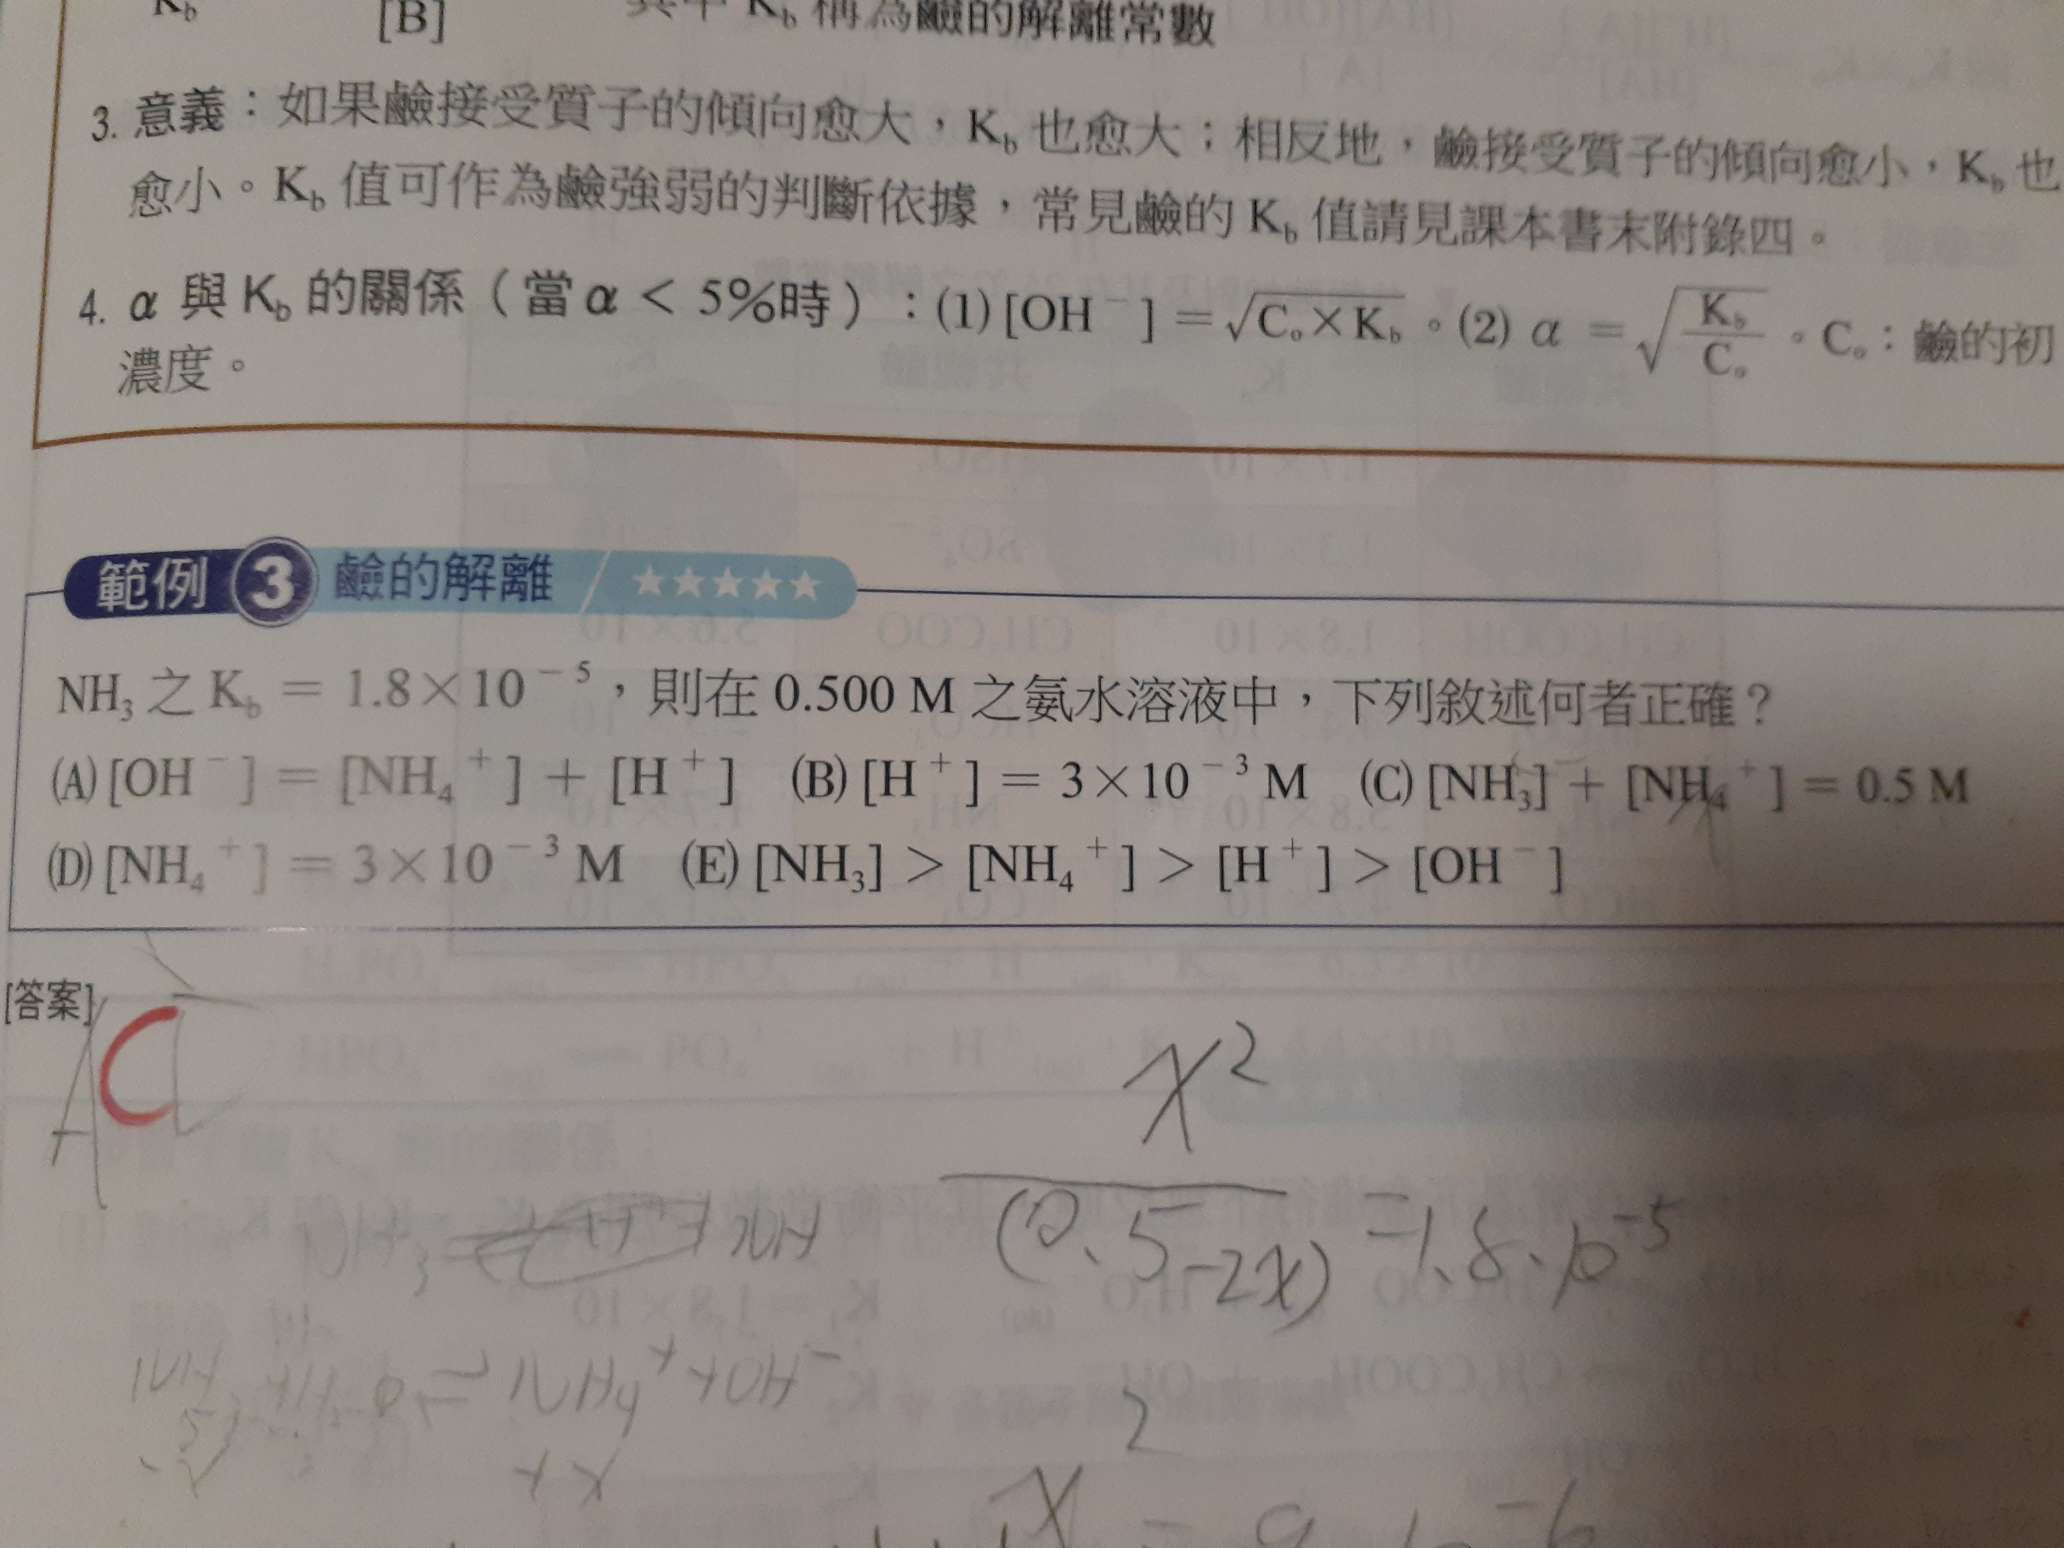 K_b [B] 其中 K_b 稱為鹼的解離常數
3. 意義：如果鹼接受質子的傾向愈大，K_b 也愈大；相反地，鹼接受質子的傾向愈小，K_b 也
愈小。K_b 值可作為鹼強弱的判斷依據，常見鹼的 K_b 值請見課本書末附錄四。
4. α 與 K_b 的關係（當 α < 5%時）：(1) [OH⁻] = √(C₀×K_b)。(2) α = √(K_b/C₀)。C₀：鹼的初
濃度。
範例 3 鹼的解離 ／ ★★★★★
NH₃ 之 K_b = 1.8×10⁻⁵，則在 0.500 M 之氨水溶液中，下列敘述何者正確？
(A) [OH⁻] = [NH₄⁺] + [H⁺] (B) [H⁺] = 3×10⁻³ M (C) [NH₃] + [NH₄⁺] = 0.5 M
(D) [NH₄⁺] = 3×10⁻³ M (E) [NH₃] > [NH₄⁺] > [H⁺] > [OH⁻]
[答案]
A C
x²
(0.5-2x) = 1.8·10⁻⁵
NH₄⁺ + OH⁻
+x